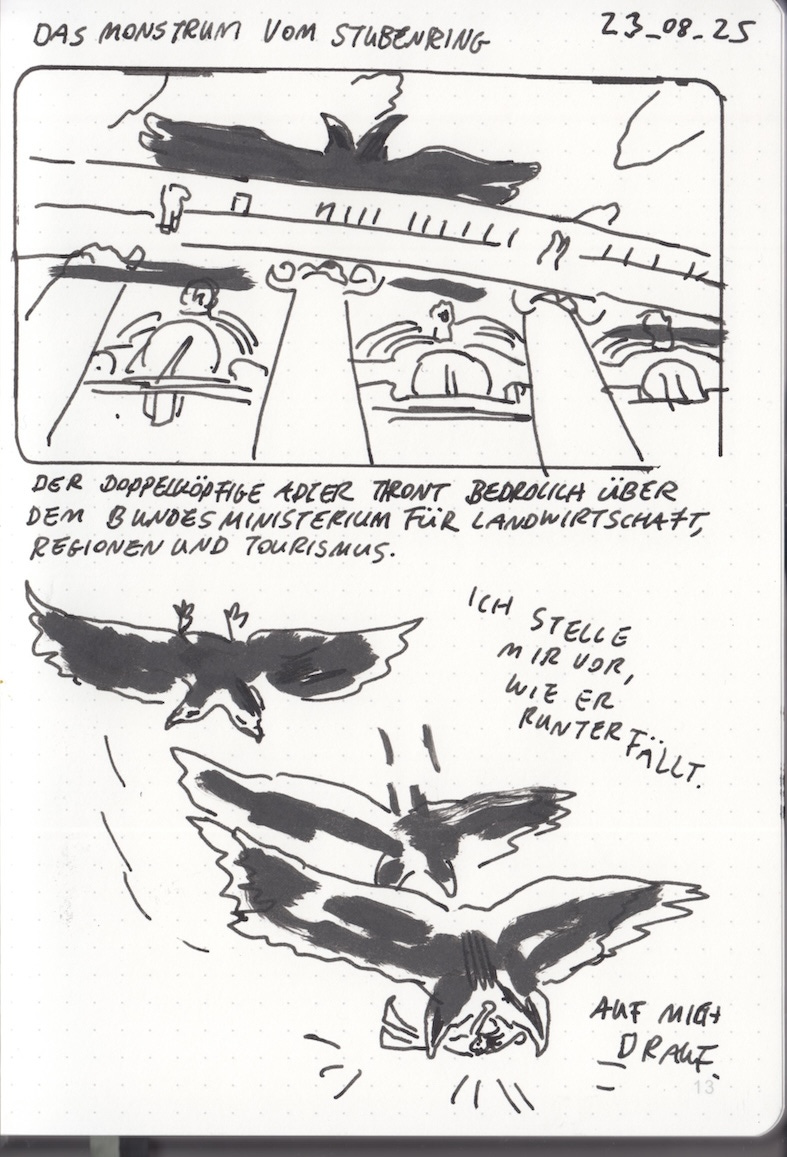 DAS MONSTRUM VOM STUBENRING
23_08_25
DER DOPPELKÖPFIGE ADLER THRONT BEDROLICH ÜBER
DEM BUNDESMINISTERIUM FÜR LANDWIRTSCHAFT,
REGIONEN UND TOURISMUS.
ICH STELLE
MIR VOR,
WIE ER
RUNTERFÄLLT.
AUF MICH
DRAUF.
13